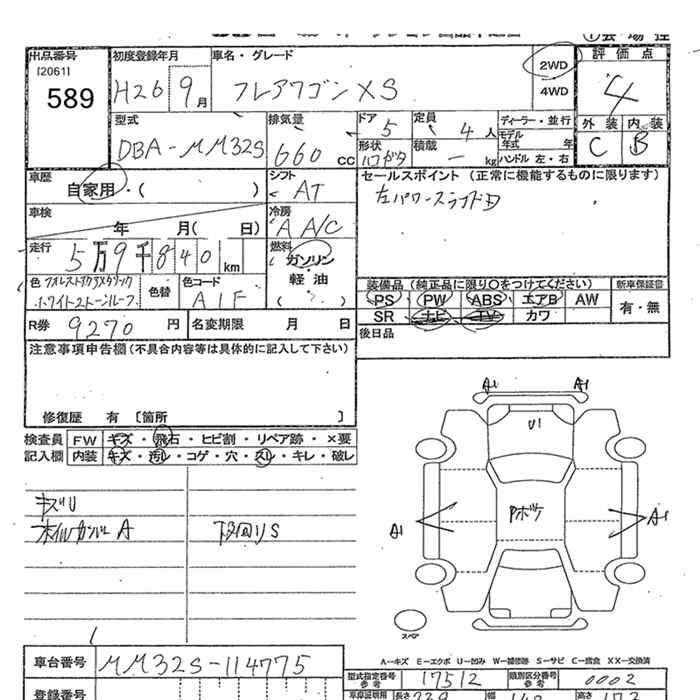 出品番号 初度登録年月 車名・グレード 2WD 評価点
[2061] 589 H26 9月 フレアワゴン XS 4WD 4
型式 排気量 ドア 5 定員 4人 ディーラー・並行 外装 内装
DBA-MM32S 660 CC 形状 積載 kg モデル年式 年 C B
ハンドル 左・右
車歴 自家用・( ) シフト AT セールスポイント (正常に機能するものに限ります)
車検 年 月( 日) 冷房 A A/C 左パワースライドD
走行 5万9千840km 燃料 ガソリン
軽・油
( )
色 ホワイト2トーンルーフ 色替 色コード A1F 装備品 (純正品に限り〇をつけてください) 新車保証書
PS PW ABS エアB AW 有・無
R券 9270円 名変期限 月 日 SR ナビ TV カワ
注意事項申告欄(不具合内容等は具体的に記入して下さい) 後日品
修復歴 有 [箇所 ]
検査員 FW キズ・飛石・ヒビ割・リペア跡・×要
記入欄 内装 キズ・汚レ・コゲ・穴・スレ・キレ・破レ
A1 A1
U1
キズU
オイルカバーA 下回りS
A1 A1
スペア
A—キズ E—エクボ U—凹み W—補修跡 S—サビ C—腐食 XX—交換済
車台番号 MM32S-114775 型式指定番号 参考 17512 類別区分番号 参考 0002
登録番号 長さ 幅 高さ